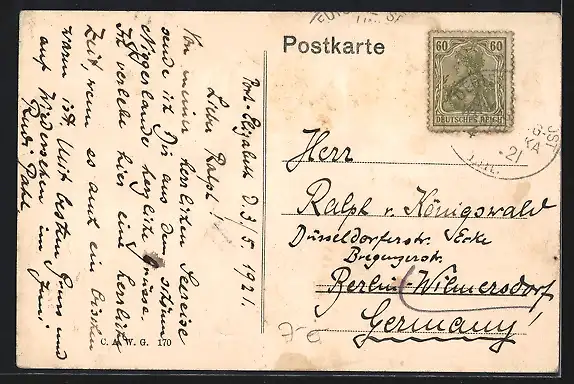 Postkarte
60 60
DEUTSCHES REICH
Port-Elizabeth d. 3/5 1921.
Lieber Ralph!
Von meiner herrlichen Seereise
sende ich Dir aus dem schönen
Niggerlande herzliche Grüsse.
Ich verlebe hier eine herrliche
Zeit, wenn es auch ein bischen
warm ist. Mit besten Gruss und
auf Wiedersehen im Juni
Rudi Pahl
Herr
Ralph v. Königswald
Düsseldorferstr. Ecke
Bregenzerstr.
Berlin-Wilmersdorf
Germany
C. A. W. G. 170